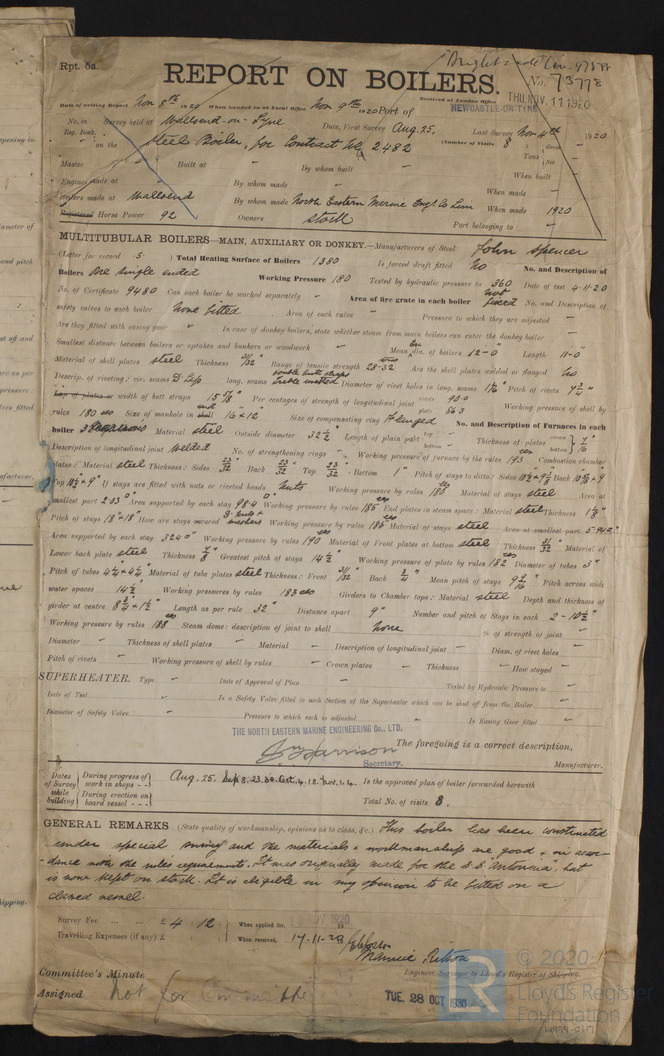 Rpt. 5a.
REPORT ON BOILERS.
No. 73778
Date of writing Report Nov 8th 1920 When handed in at Local Office Nov 9th 1920 Port of NEWCASTLE-ON-TYNE
Received at London Office THU. NOV. 11 1920
No. in Survey held at Wallsend-on-Tyne Date, First Survey Aug. 25, Last Survey Nov 4th 1920
Reg. Book. on the Steel Boiler, for Contract No 2482 (Number of Visits 8) Gross
Tons Net
Master Built at By whom built When built
Engines made at By whom made When made
Boilers made at Wallsend By whom made North Eastern Marine Engg. Co Lim When made 1920
Registered Horse Power 92 Owners Stock Port belonging to
MULTITUBULAR BOILERS—MAIN, AUXILIARY OR DONKEY.—Manufacturers of Steel John Spencer
(Letter for record S) Total Heating Surface of Boilers 1380 Is forced draft fitted No No. and Description of
Boilers One single ended Working Pressure 180 Tested by hydraulic pressure to 360 Date of test 4-11-20
No. of Certificate 9480 Can each boiler be worked separately Area of fire grate in each boiler not fixed No. and Description of
safety valves to each boiler None fitted Area of each valve Pressure to which they are adjusted
Are they fitted with easing gear In case of donkey boilers, state whether steam from main boilers can enter the donkey boiler
Smallest distance between boilers or uptakes and bunkers or woodwork Mean dia. of boilers 12-0 Length 11-0"
Material of shell plates steel Thickness 31/32 Range of tensile strength 28-32 Are the shell plates welded or flanged No
Descrip. of riveting: cir. seams D Lap long. seams double butt straps treble riveted Diameter of rivet holes in long. seams 1 1/16 Pitch of rivets 7 3/4"
Lap of plates or width of butt straps 15 5/8" Per centages of strength of longitudinal joint rivets 90.0 plate 86.3 Working pressure of shell by
rules 180 lbs Size of manhole in end 16 x 12 Size of compensating ring Flanged No. and Description of Furnaces in each
boiler 3 Deightons Material steel Outside diameter 32 1/2" Length of plain part top bottom Thickness of plates crown bottom 7/16"
Description of longitudinal joint welded No. of strengthening rings Working pressure of furnace by the rules 193 lbs Combustion chamber
plates: Material steel Thickness: Sides 23/32 Back 23/32 Top 23/32 Bottom 1" Pitch of stays to ditto: Sides
If stays are fitted with nuts or riveted heads Nuts Working pressure by rules Material of stays steel Area at
smallest part 2.03" Area supported by each stay 98.4 Working pressure by rules 185 lbs End plates in steam space: Material steel Thickness 1 1/8"
Pitch of stays 18" x 18" How are stays secured Working pressure by rules 185 lbs Material of stays steel Area at smallest part 5.94"
Area supported by each stay 324 Working pressure by rules 190 Material of Front plates at bottom steel Thickness 31/32 Material of
Lower back plate steel Thickness 7/8 Greatest pitch of stays 14 1/2" Working pressure of plate by rules 182 lbs Diameter of tubes 3"
Pitch of tubes 4 1/4 x 4 1/4 Material of tube plates steel Thickness: Front 31/32 Back 3/4 Mean pitch of stays Pitch across wide
water spaces 14 1/2" Working pressures by rules 183 lbs Girders to Chamber tops: Material steel Depth and thickness of
girder at centre 8 3/4 x 1 1/2" Length as per rule 32" Distance apart 9" Number and pitch of Stays in each 2 - 10 1/2"
Working pressure by rules 188 lbs Steam dome: description of joint to shell None % of strength of joint
Diameter Thickness of shell plates Material Description of longitudinal joint Diam. of rivet holes
Pitch of rivets Working pressure of shell by rules Crown plates Thickness How stayed
SUPERHEATER. Type Date of Approval of Plan Tested by Hydraulic Pressure to
Date of Test Is a Safety Valve fitted to each Section of the Superheater which can be shut off from the Boiler
Diameter of Safety Valve Pressure to which each is adjusted Is Easing Gear fitted
THE NORTH EASTERN MARINE ENGINEERING Co., LTD.
Harrison The foregoing is a correct description,
Secretary. Manufacturer.
Dates of Survey while building During progress of work in shops - - Aug. 25. Sep. 8. 23. 30. Oct. 4. 18. Nov. 1. 4. Is the approved plan of boiler forwarded herewith
During erection on board vessel - - - Total No. of visits 8.
GENERAL REMARKS (State quality of workmanship, opinions as to class, &c.) This boiler has been constructed
under special survey and the materials & workmanship are good & in accor-
dance with the rules requirements. It was originally made for the S.S. "Antonina", but
is now kept on stock. It is eligible in my opinion to be fitted on a
classed vessel.
Survey Fee ... ... £ 4 12 When applied for, 10 NOV 1920
Travelling Expenses (if any) £ When received, 17-11-20
Engineer Surveyor to Lloyd's Register of Shipping.
Committee's Minute TUE. 28 OCT 1930
Assigned Not for Committee
© 2020
Lloyd's Register
Foundation